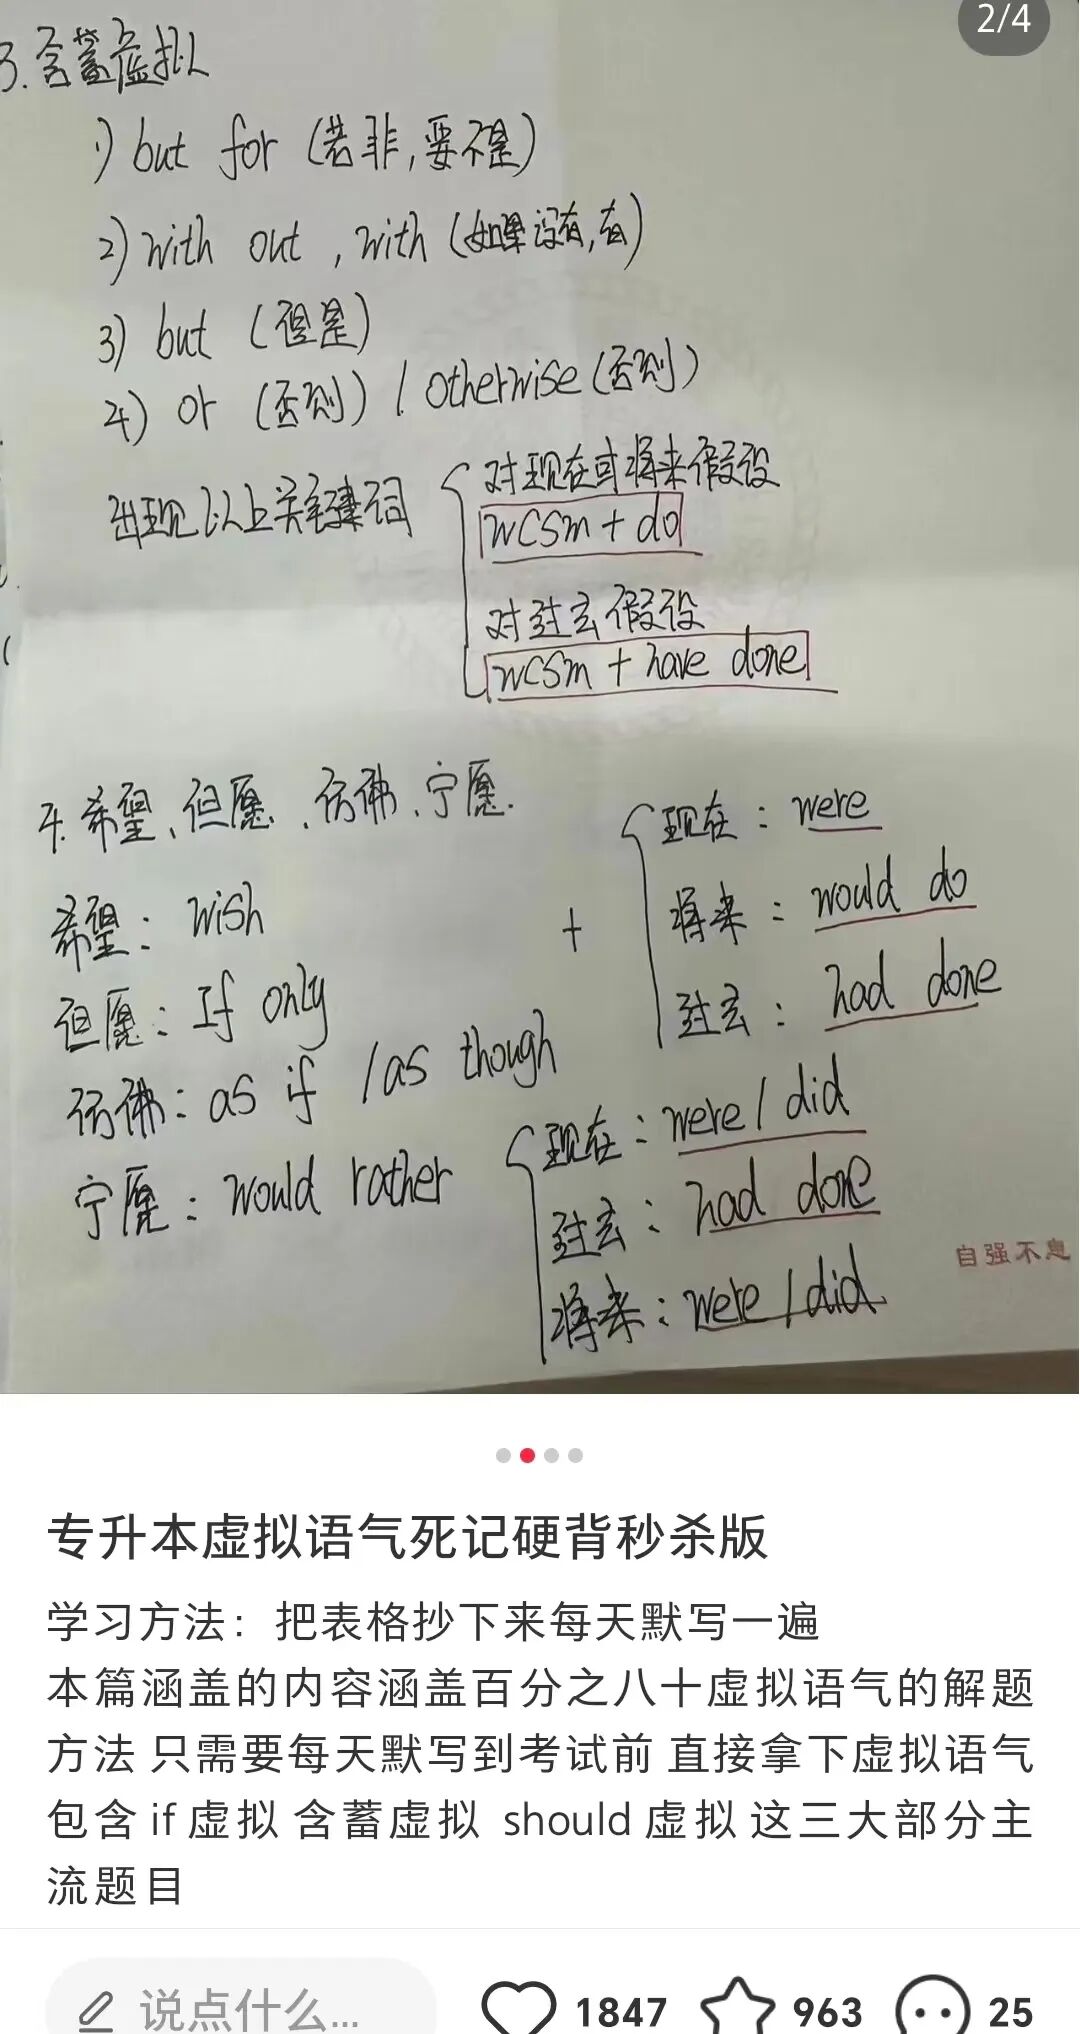 2/4
3.含蓄虚拟
1) but for (若非,要不是)
2) with out , with (如果没有,有)
3) but (但是)
4) or (否则) / otherwise (否则)
出现以上关键词
对现在或将来假设
wcsm + do
对过去假设
wcsm + have done
4.希望、但愿、仿佛、宁愿.
希望: wish
但愿: If only
仿佛: as if / as though
+
现在: were
将来: would do
过去: had done
宁愿: would rather
现在: were / did
过去: had done
将来: were / did
自强不息
专升本虚拟语气死记硬背秒杀版
学习方法：把表格抄下来每天默写一遍
本篇涵盖的内容涵盖百分之八十虚拟语气的解题
方法 只需要每天默写到考试前 直接拿下虚拟语气
包含 if 虚拟 含蓄虚拟 should 虚拟 这三大部分主
流题目
说点什么... 1847 963 25